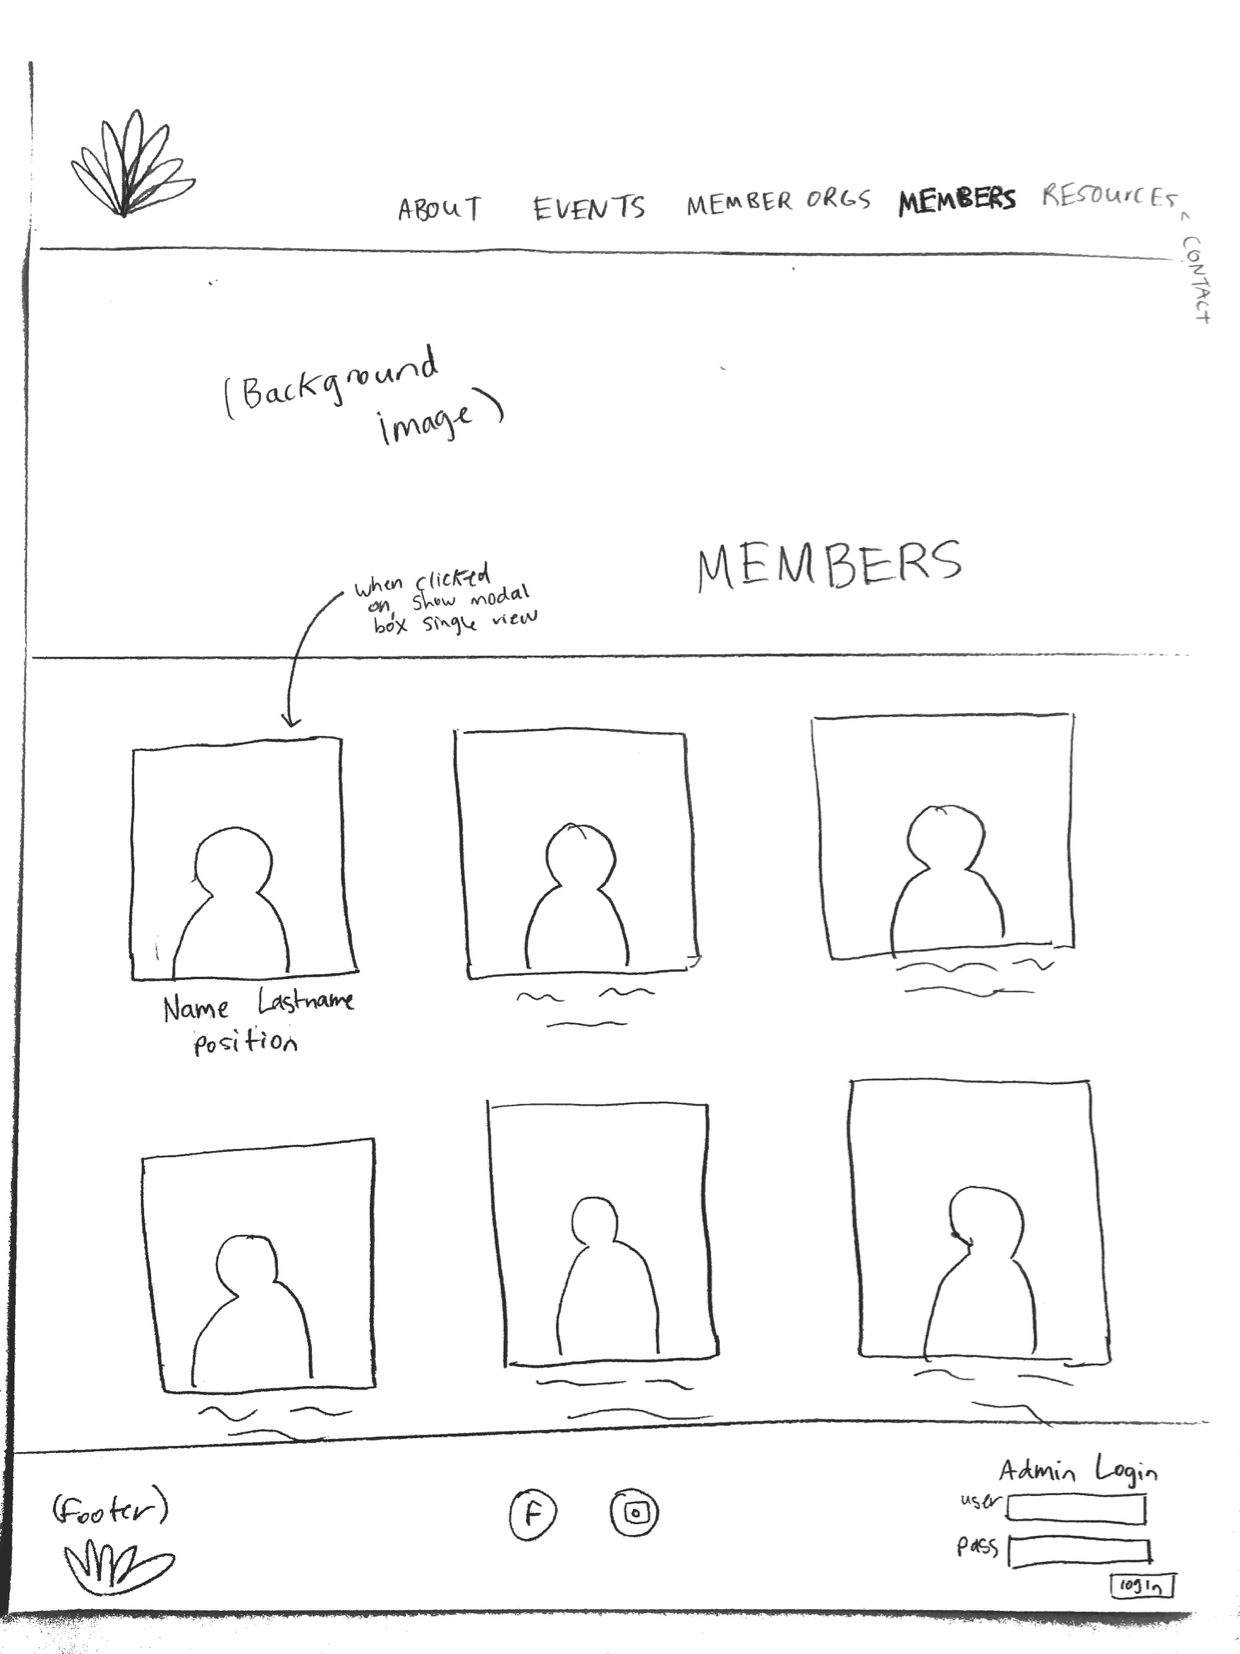 ABOUT EVENTS MEMBER ORGS MEMBERS RESOURCES
CONTACT
(Background
image)
MEMBERS
when clicked
on, show modal
box single view
Name Lastname
position
(Footer)
F
Admin Login
user
pass
login